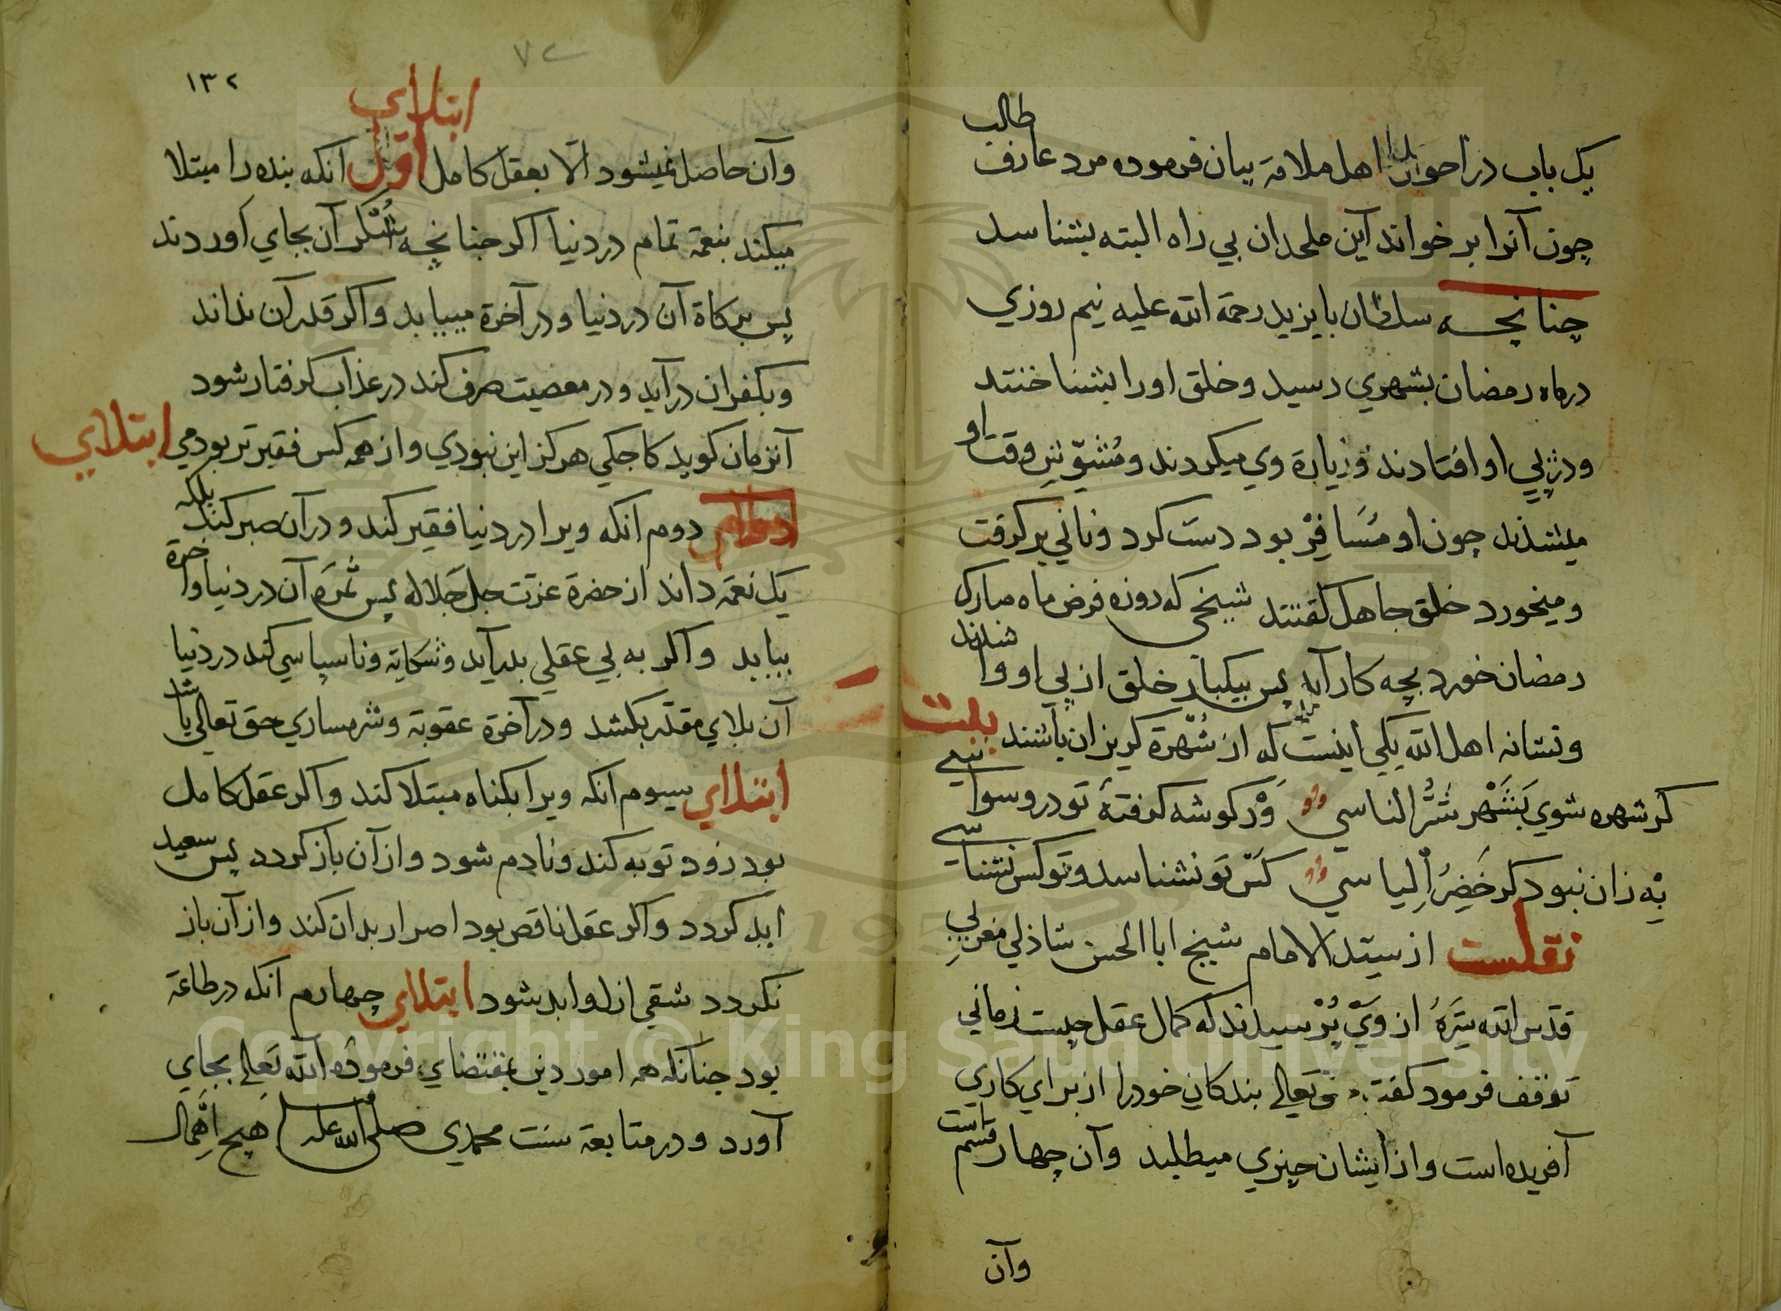 یک باب در احوال اهل ملامة بیان فرموده مرد عارف طالب
چون آنرا بر خواند آین ملحدان بی راه البته بشناسد
چنانچه سلطان بایزید رحمة الله علیه نیم روزی
در ماه رمضان بشهری رسید و خلق اورا بشناختند
و در پی او افتادند و زیارة وی میکردند و مشوّش وقت او
میشدند چون او مُسَافِرْ بود دست کرد و نانی بر کرفت
و میخورد خلق جاهل کفتند شیخی که روزه فرض ماه مبارک
رمضان خورد بچه کار آید پس بیکبار خلق از پی او وا شدند
و نشانه اهل الله یکی اینست که از شُهْرة کریزان باشند بیت
کر شهره شوی بَشَهْر شَرُّ الناسی وَرْ کوشه کرفتهٔ تو در وسواسی
بِه زان نبود کر خَضِرُ اِلیاسی کس تو نشناسد و تو کس نشناسی
نقلست از سیّد الامام شیخ ابا الحسن شاذلی مغربی
قدس الله سِرَّهُ از وَیْ پُرْسیدند که کمال عقل چیست زمانی
توقف فرمود کفت حق تعالی بندکان خود را از برای کاری
آفریده است و از ایشان چیزی میطلبد وآن چهار قسم است
وآن
۱۳۲
۷۲
وآن حاصل نمیشود الّا بعقل کامل ابتلای اوّل آنکه بنده را مبتلا
میکند بنعمة تمام در دنیا اکر چنانچه شُکر آن بجای آوردند
پس برکاة آن در دنیا و در آخرة مییابد و اکر قدر آن نداند
و بکفران در آید و در معصیت صرف کند در عذاب کرفتار شود
آنزمان کوید کاجکی هرکز این نبودی و از همه کس فقیرتر بودمی ابتلای
دوم دوم انکه ویرا در دنیا فقیر کند و در آن صبر کند بلکه
یک نعمة داند از حضرة عزّت جل جلاله پس ثمرَه آن در دنیا و آخرة
بیابد و اکر به بی عقلی بدر آید و شکایة و ناسپاسی کند در دنیا
آن بلای مقدّر بکشد و در آخرة عقوبة و شرمساری حق تعالی باشد
ابتلای سیوم انکه ویرا بکناه مبتلا کند و اکر عقل کامل
بود زود توبه کند و نادم شود و از آن باز کردد پس سعید
ابد کردد و اکر عقل ناقص بود اصرار بدان کند و از آن باز
نکردد شقی ازل و ابد شود ابتلای چهارم انکه در طاعة
بود چنانکه همه امور دین بمقتضای فرموده الله تعالی بجای
آورد و در متابعة سنت محمدی صلی الله علیه هیچ اِهْمال
Copyright © King Saud University
1957